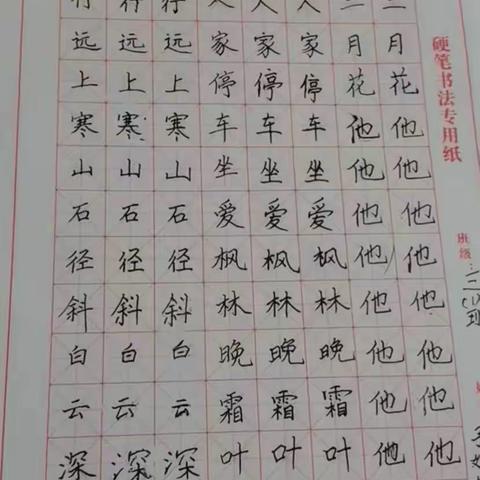 行 行 行 人 人 人 二 二
远 远 远 家 家 家 月 月
上 上 上 停 停 停 花 花
寒 寒 寒 车 车 车 他 他
山 山 山 坐 坐 坐 他 他
石 石 石 爱 爱 爱 他 他
径 径 径 枫 枫 枫 他 他
斜 斜 斜 林 林 林 他 他
白 白 白 晚 晚 晚 他 他
云 云 云 霜 霜 霜 他 他
深 深 深 叶 叶 叶 他 他
硬笔书法专用纸
班级: